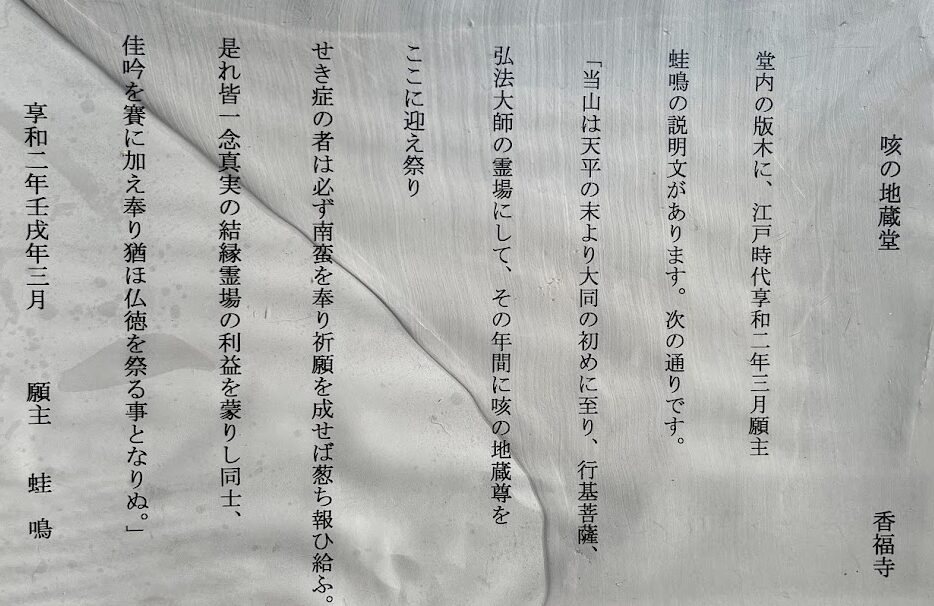 咳の地蔵堂　香福寺
堂内の版木に、江戸時代享和二年三月願主
蛙鳴の説明文があります。次の通りです。
「当山は天平の末より大同の初めに至り、行基菩薩、
弘法大師の霊場にして、その年間に咳の地蔵尊を
ここに迎え祭り
せき症の者は必ず南蛮を奉り祈願を成せば葱ち報ひ給ふ。
是れ皆一念真実の結縁霊場の利益を蒙りし同士、
佳吟を賽に加え奉り猶ほ仏徳を祭る事となりぬ。」
享和二年壬戌年三月　願主　蛙鳴